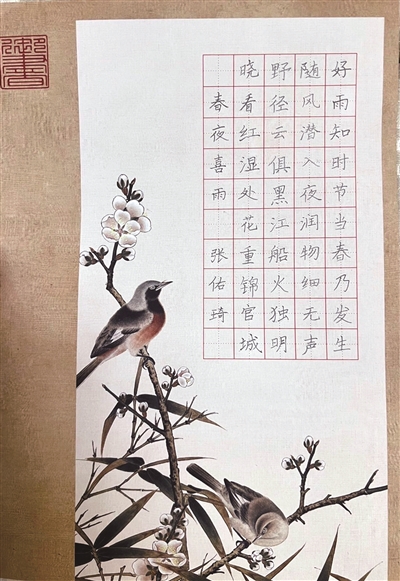 好雨知时节当春乃发生
随风潜入夜润物细无声
野径云俱黑江船火独明
晓看红湿处花重锦官城
春夜喜雨 张佑琦